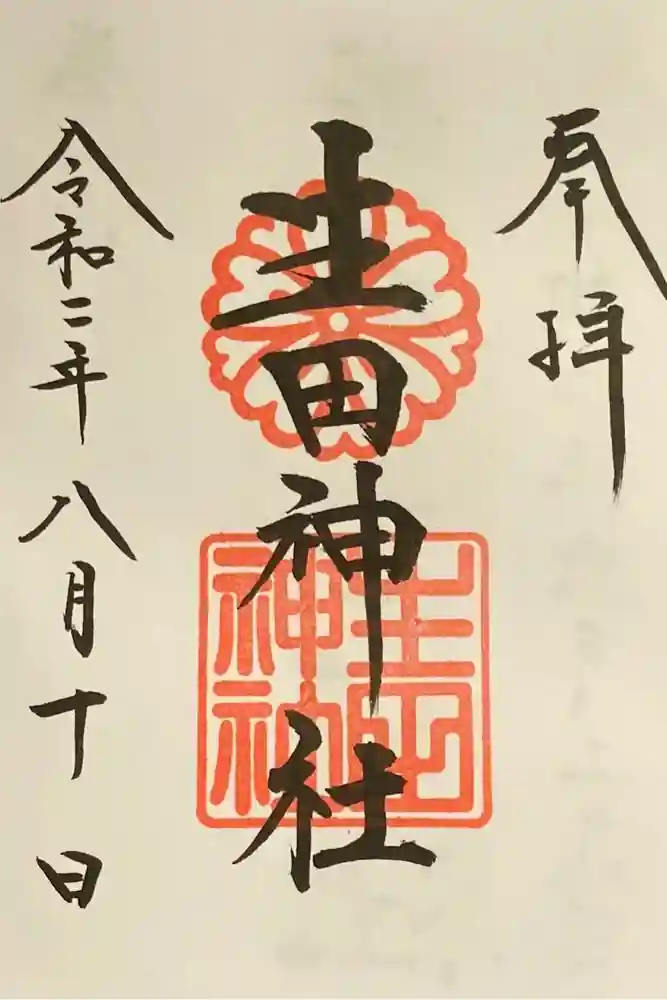 奉拝
生田神社
生田
神社
令和二年八月十日